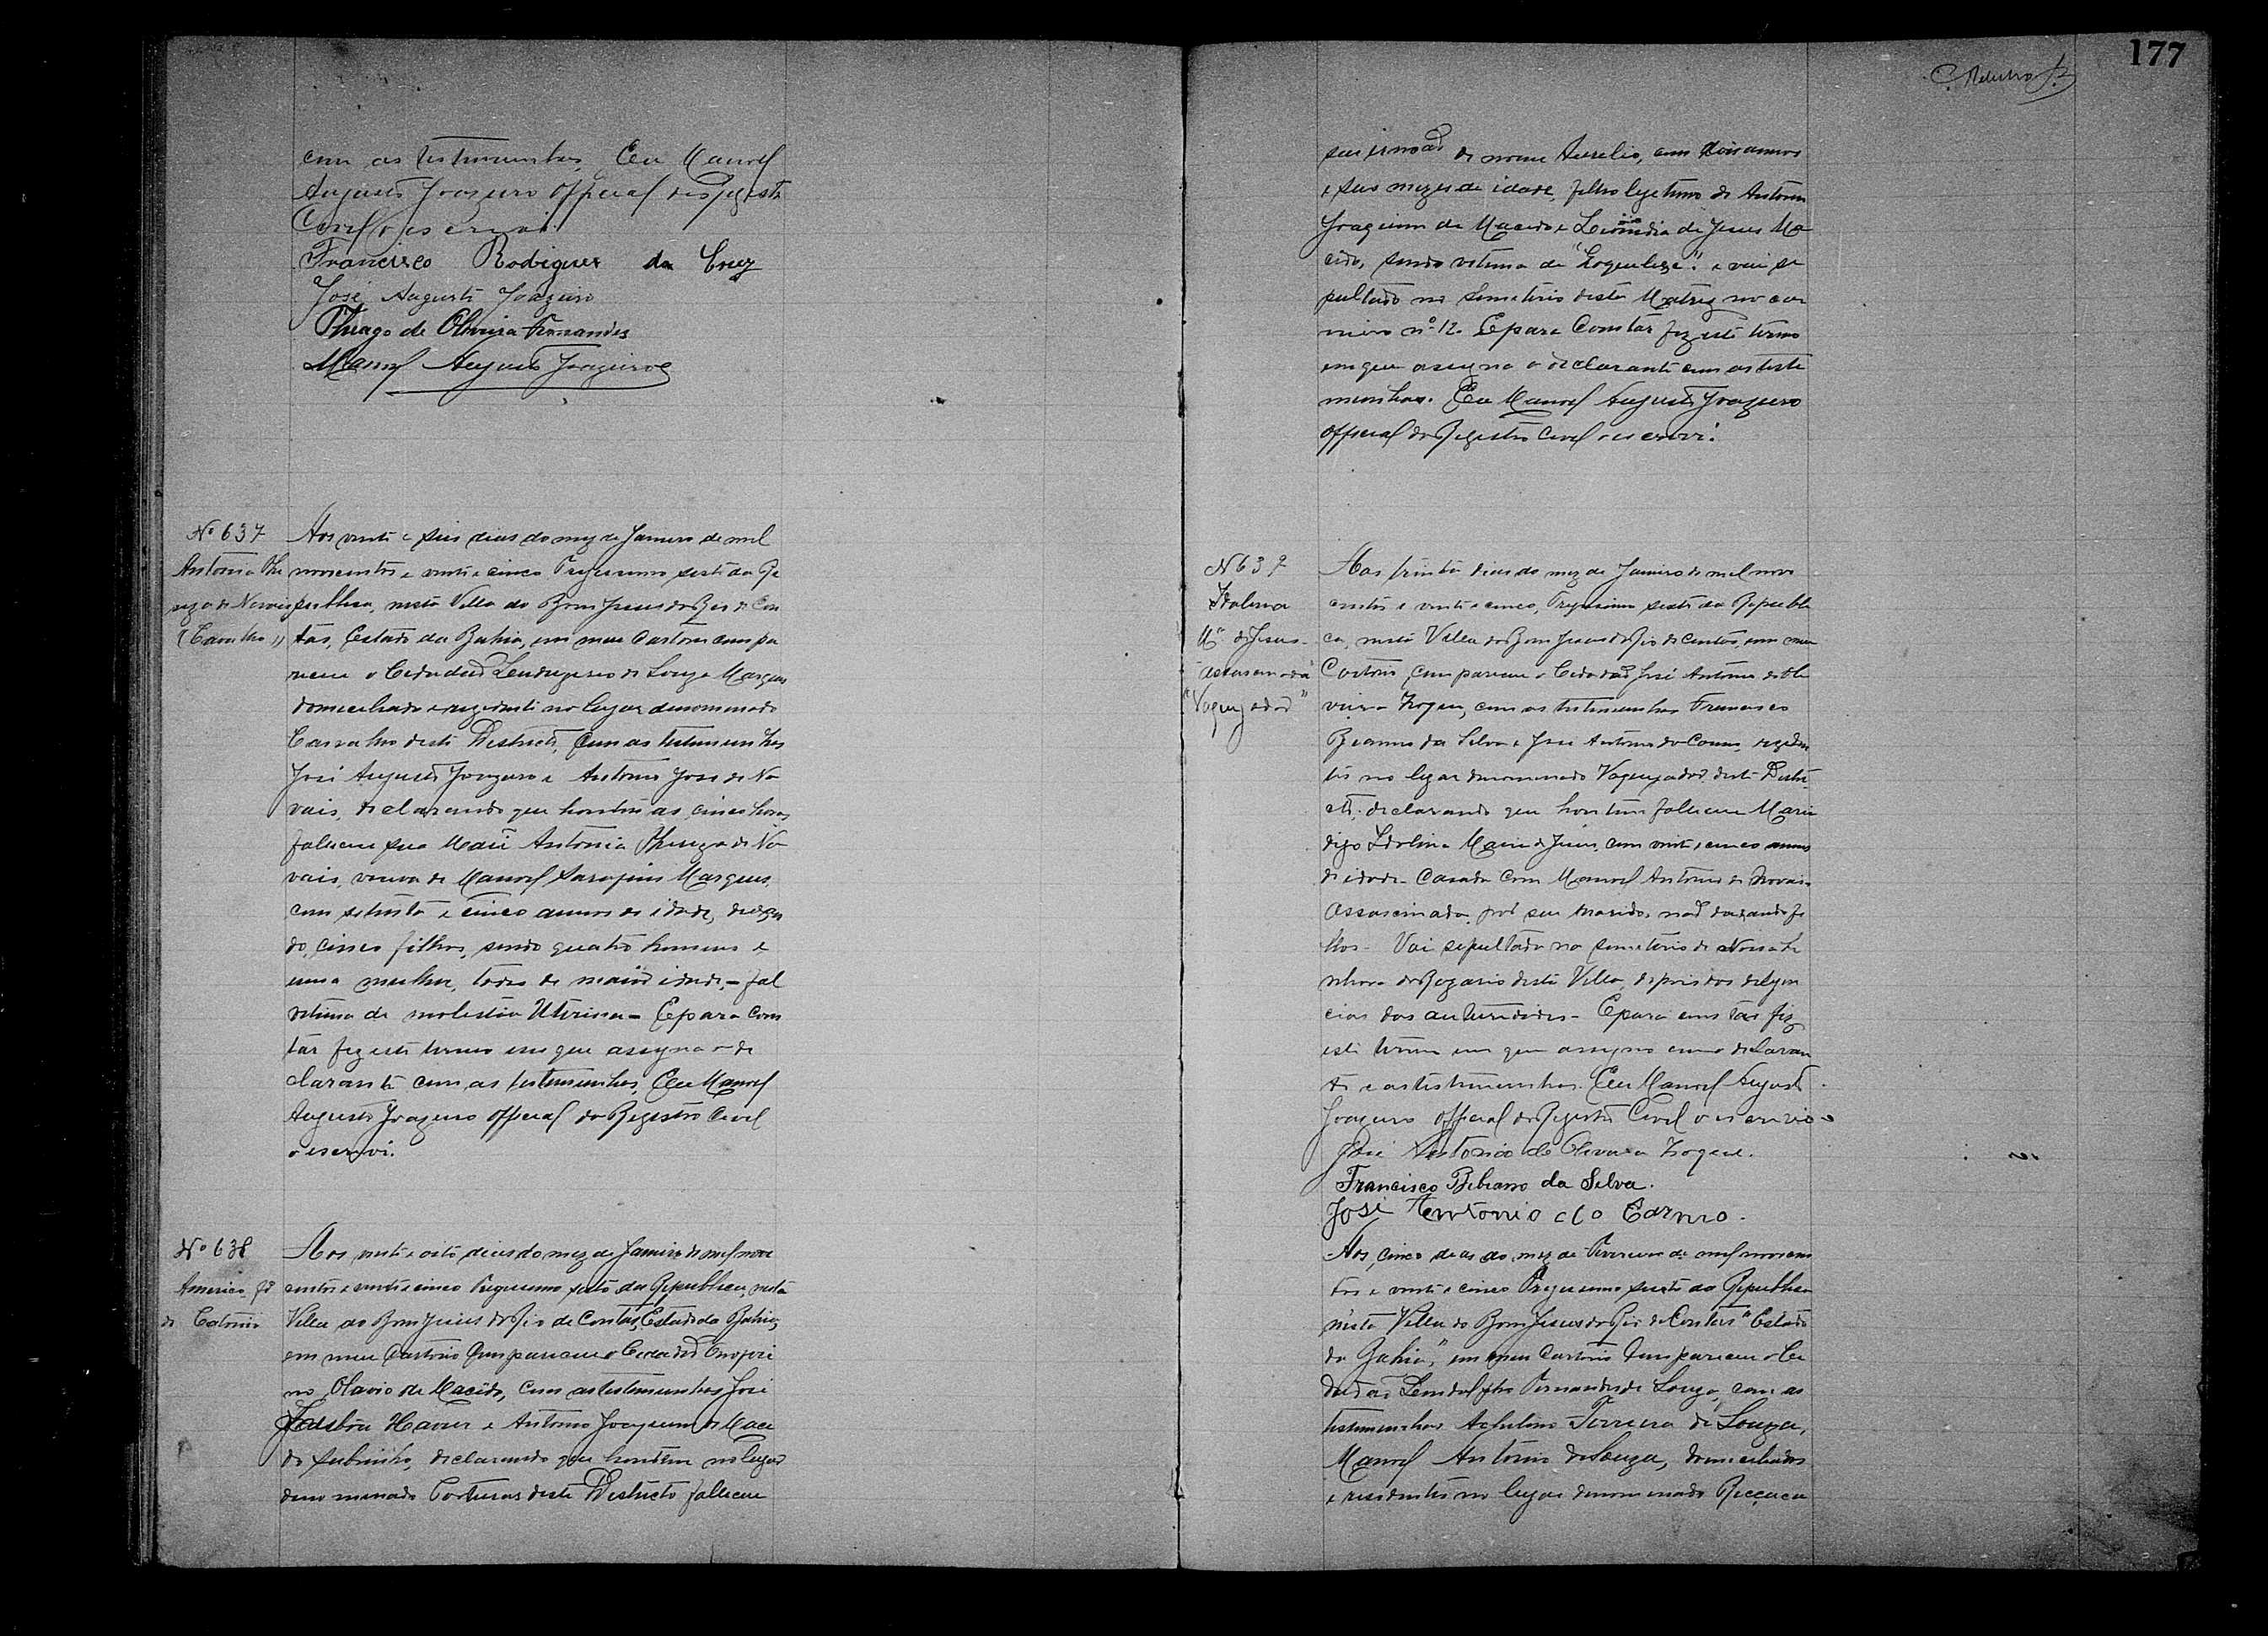 com as testimunhas, Eu Manoel
Augusto Joazeiro Official do Registro
Civil o escrevi.
Francisco Rodigues da Cruz
José Augusto Joazeiro
Thiago de Oliveira Fernandes
Manoel Augusto Joazeiro
Nº 637
Antonia The
reza de Novais
(Carvalho)
Aos vinte e seis dias do mez de Janeiro de mil
novecentos e vinte e cinco Trigessimo sesto da Re
publica, nesta Villa do Bom Jesus do Rio de Con
tas, Estado da Bahia, em meu Cartorio compa
receu o Cidadão de Souza Marques
domiciliado e rezidente no lugar denominado
Carvalho deste Destricto, com as testimunhas
José Augusto Joazeiro e Antonio José de No
vais, declarando que hontem as cinco horas
falleceu sua Mãe Antonia Thereza de No
vais, viuva de Manoel Marques,
com setenta e cinco annos de idade, deixan
do, cinco filhos, sendo quatro homens e
uma mulher, todos de maior idade, - fal
vitima de molestia Uterina - E para Cons
tar fiz este termo em que assigna o de
clarante com as testimunhas, Eu Manoel
Augusto Joazeiro Official do Registro Civil
o escrevi.
Nº 638
Americo fº
de
Aos vinte e oito dias do mez de Janeiro de mil nove
centos e vinte e cinco Trigessimo sesto da Republica, nesta
Villa do Bom Jesus do Rio de Contas, Estado da Bahia,
em meu Cartorio Compareceu o Cidadão
Olavio de Macêdo, Com as testimunhas José
Xavier e Antonio Joaquim de Mace
do Subrinho, declarando que hontem no lugar
denominado deste Destricto falleceu
177
seu irmão de nome Aurelio, com dois annos
e seis mezes de idade, filho legitimo de Antonio
Joaquim de Macedo e de Jesus Ma
cedo, sendo vitima de e vai se
pultado no Semeterio desta Matriz no car
neiro nº 12. E para Constar fiz este termo
em que assigna o declarante com as teste
munhas. Eu Manoel Augusto Joazeiro
Official do Registro Civil o escrevi.
N 639
Idalina
Mª de Jesus
assassinada
"Vaquejador"
Aos trinta dias do mez de Janeiro de mil nove
centos e vinte e cinco, Trigessimo sesto da Republi
ca, nesta Villa do Bom Jesus do Rio de Contas, em meu
Cartorio, Compareceu o Cidadão José Antonio de Oli
veira Roque, com as testimunhas Francisco
Bibiano da Silva e José Antonio do Carmo, reziden
tes no lugar denominado Vaquejador, deste Destri
cto, declarando que hontem falleceu Maria
digo Idolina Maria de Jesus, com vinte e cinco annos
de idade - Casada Com Manoel Antonio de Novais
Assassinada por seu marido, não deixando fi
lhos - Vai sepultada no semeterio de Nossa Se
nhora do Rozario desta Villa, depois das deligen
cias das auturidades - E para constar fiz
este termo em que assigno com o declaran
te e as testimunhas. Eu Manoel Augusto
Joazeiro Official do Registro Civil o escrevi
José Antonio de Oliveira Roque.
Francisco Bibiano da Silva.
José Antonio do Carmo.
Aos, cinco dias do mez de Fevereiro de mil novecen
tos e vinte e cinco Trigessimo sesto da Republica
nesta Villa do Bom Jesus do Rio de Contas "Estado
da Bahia," em meu Cartorio Compareceu o Ci
dadão Fernandes de Souza, com as
testimunhas Ferreira de Souza,
Manoel Antonio de Souza, domiciliados
e residentes no lugar denominado